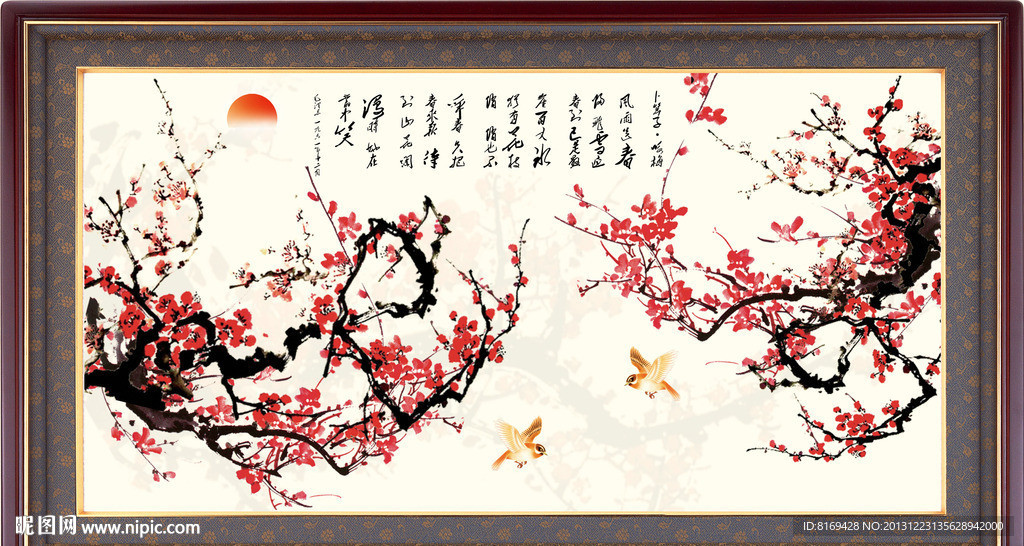 卜算子·咏梅
风雨送春
归飞雪迎
春到已是悬
崖百丈冰
犹有花枝
俏 俏也不
争春只把
春来报 待
到山花烂
漫时她在
丛中笑
毛泽东 一九六一年十二月
昵图网 www.nipic.com
ID:8169428 NO:20131223135628942000